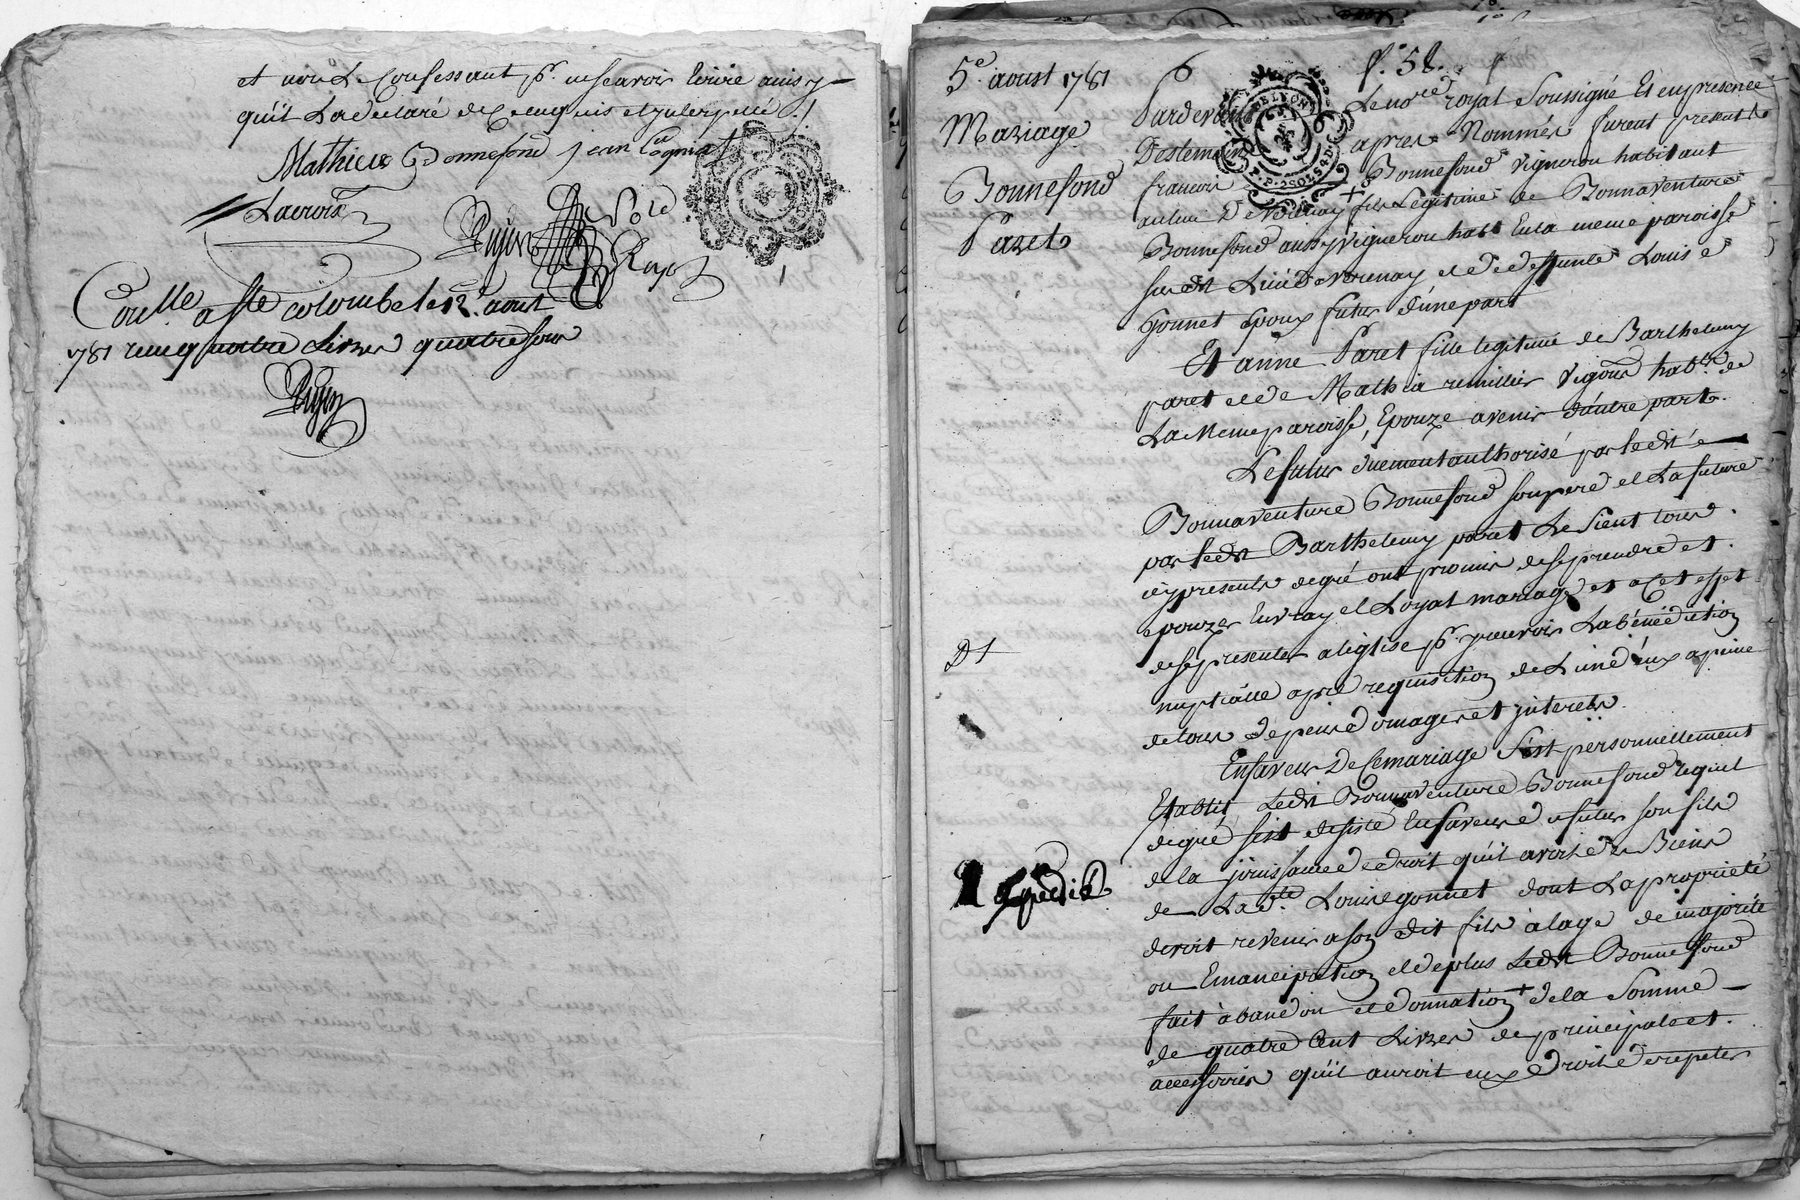 et non le Confessant pr. ne scavoir Ecrire ainsy
quil La declaré de Ce enquis et interpellé ./.
Mathieu Bonnefond jean Cognat
Lacroix
Pujon
Conlle. a ste colombe le 12. aout
1781 recu quatre Livres quatre sous
Pujon
5e. aoust 1781
Mariage
Bonnefond
Paret
Dt
Expedié
6
fo. 58.
Pardevant Le nore. royal Soussigné Et en presence
Des temoins apres Nommés furent presents
francois Bonnefond vigneron habitant
au lieu De Verenay fils Legitime de Bonnaventure
Bonnefond aussy vigneron habt. En la meme paroisse
susdit Lieu De Verenay et de deffunte Louise
Gonnet Epoux futur d'une part
Et anne Paret fille legitime de Barthelemy
paret et de Mathia remillier vignons habts. de
La Meme paroisse, Epouze avenir d'autre part.
Le futur duement authorisé par ledit
Bonnaventure Bonnefond son pere et La future
par ledit Barthelemy paret Le Sien tous
icy presents de gré ont promis de se prendre et
epouzer En vray et Loyal mariage et a Cet effet
de se presenter a l'église pr. y recevoir La bénédiction
nuptialle apres requisition de L'un d'eux a peine
de tous depens domages et interets.
En faveur De Ce mariage S'est personnellement
Etablit Ledit Bonnaventure Bonnefond lequel
de gré s'est desisté En faveur du futur son fils
de la jouissance et droit qu'il avoit des Biens
de Lade. Louise gonnet dont La proprieté
devoit revenir a son dit fils à l'age de majorité
ou Emancipation et de plus Ledit Bonnefond
fait abandon et donnation + de la Somme
de quatre Cent Livres de principal et
accessoires qu'il auroit eu Droit de repeter